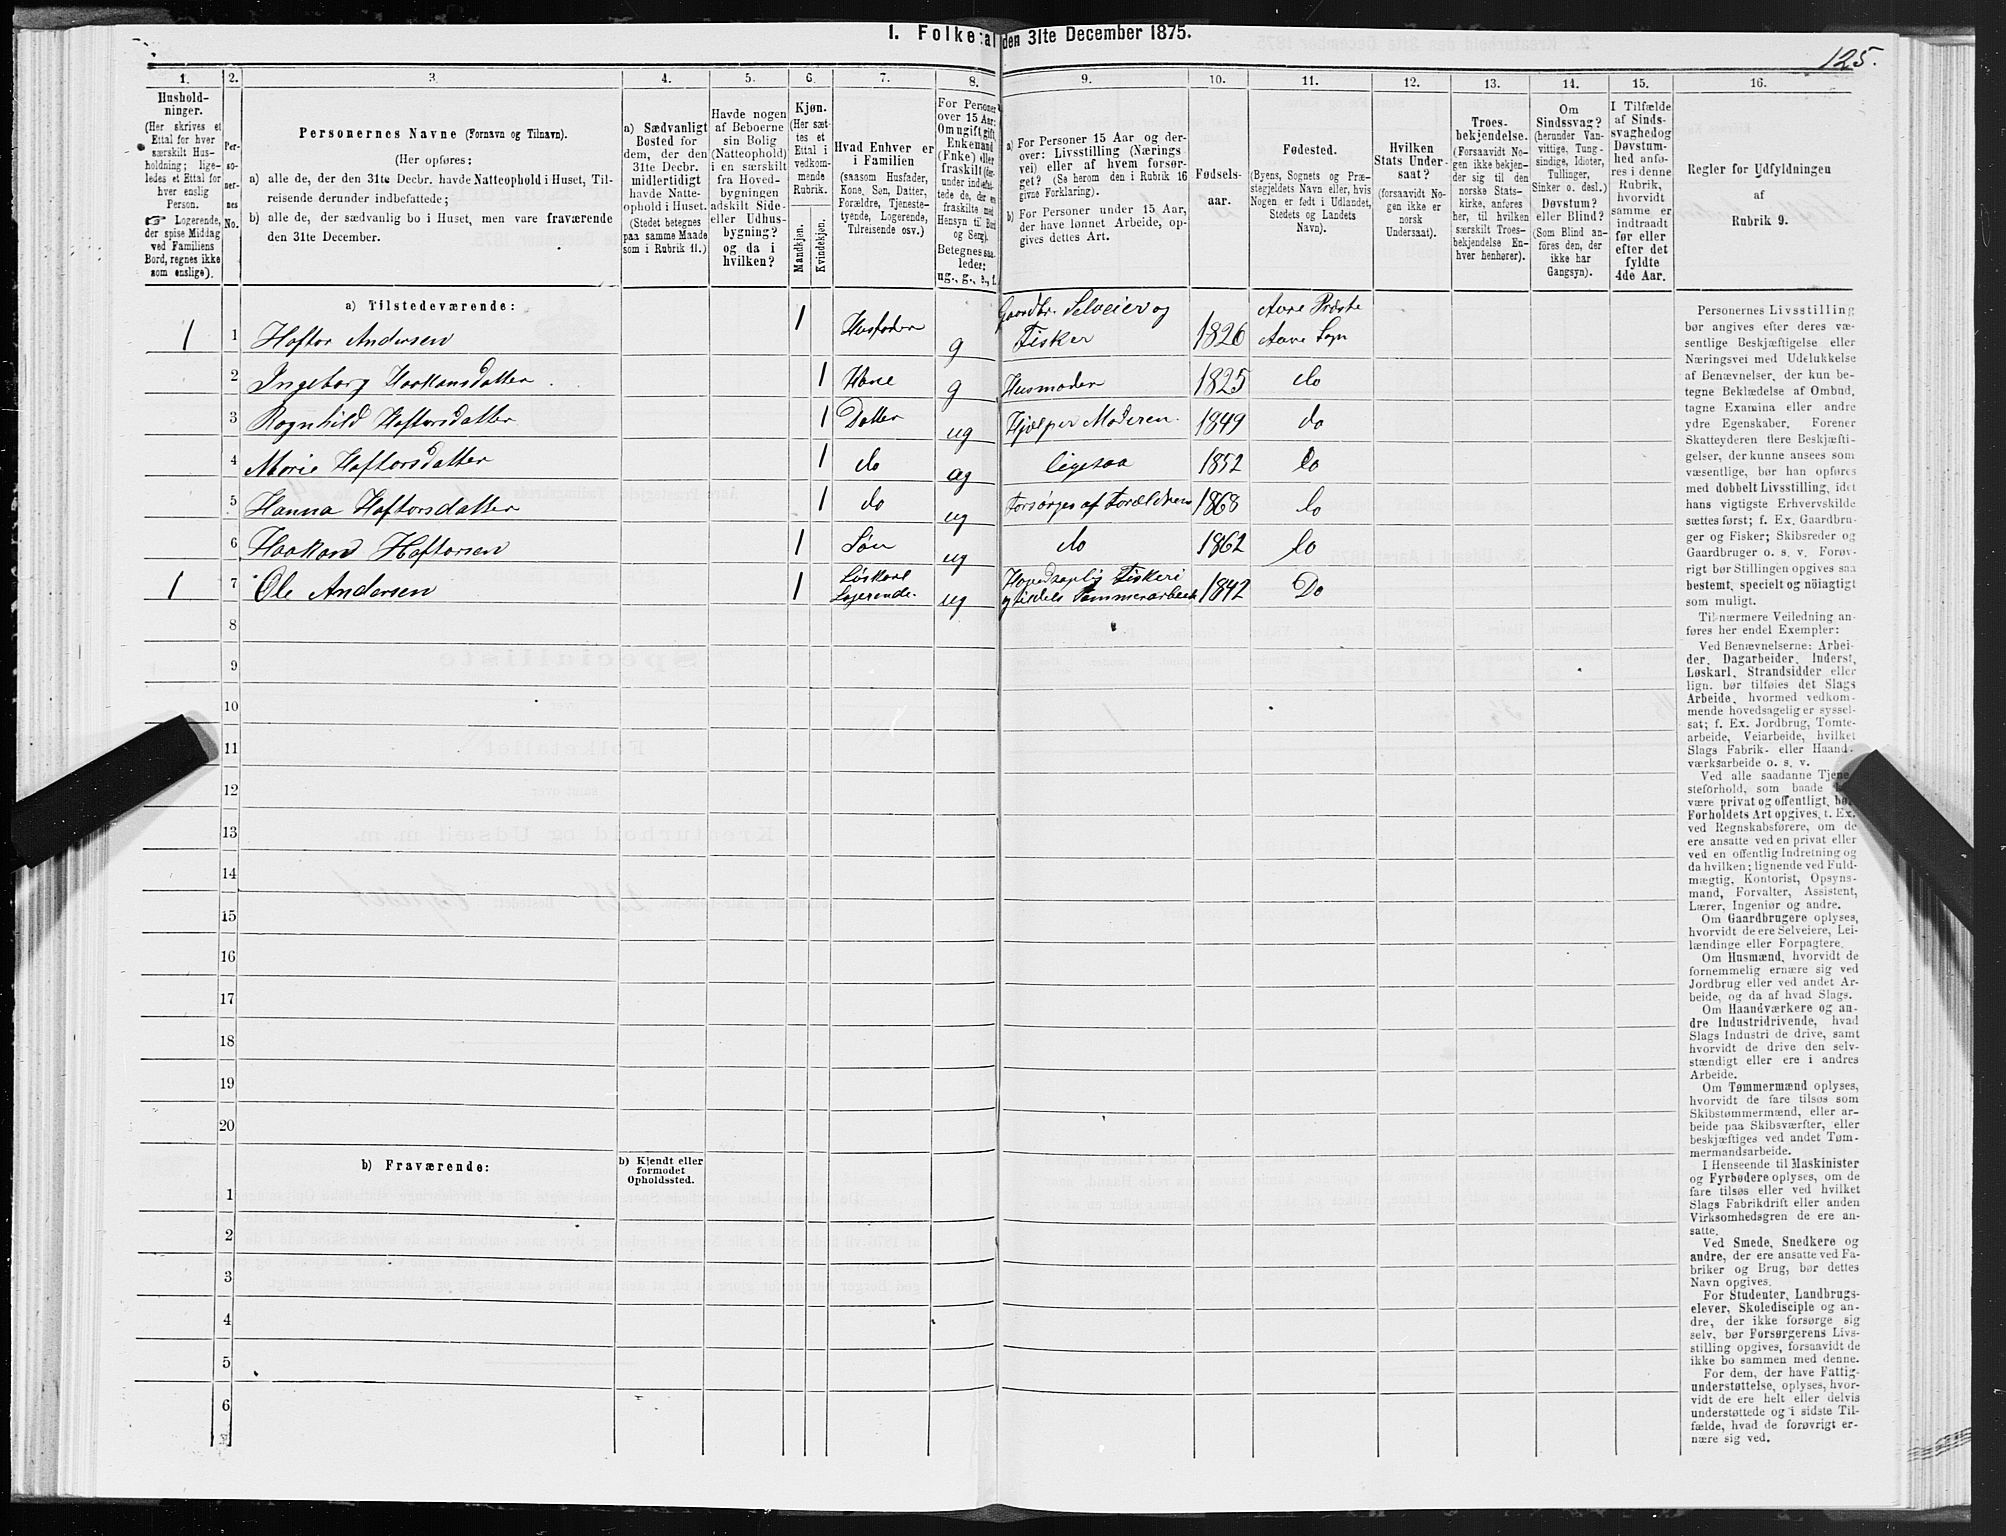 I. Folketal den 31te December 1875.
125.
1. 2. 3. 4. 5. 6. 7. 8. 9. 10. 11. 12. 13. 14. 15. 16.
Hushold-
ninger.
(Her skrives et
Ettal for hver
særskilt Hus-
holdning; lige-
ledes et Ettal for
hver enslig
Person.
☞ Logerende,
der spise Middag
ved Familiens
Bord, regnes ikke
som enslige).
Per-
so-
ner-
nes
No.
Personernes Navne (Fornavn og Tilnavn).
(Her opføres:
a) alle de, der den 31te Decbr. havde Natteophold i Huset, Til-
reisende derunder indbefattede;
b) alle de, der sædvanlig bo i Huset, men vare fraværende
den 31te December.
a) Sædvanligt
Bosted for
dem, der den
31te Decbr.
midlertidigt
havde Natte-
ophold i Huset.
(Stedet betegnes
paa samme Maade
som i Rubrik 11.)
Havde nogen
af Beboerne
sin Bolig
(Natteophold)
i en særskilt
fra Hoved-
bygningen
adskilt Side-
eller Udhus-
bygning?
og da i
hvilken?
Kjøn.
(Her sæt-
tes et
Ettal i
vedkom-
mende
Rubrik.
Mandkjøn.
Kvindekjøn.
Hvad Enhver er
i Familien
(saasom Husfader,
Kone, Søn, Datter,
Forældre, Tjeneste-
tyende, Logerende,
Tilreisende osv.)
For Personer
over 15 Aar:
Om ugift, gift,
Enkemand
(Enke) eller
fraskilt (her-
under indbefat-
tede de, der ere
fraskilte med
Hensyn til Bord
og Seng).
Betegnes saa-
ledes:
ug., g., e., f.
a) For Personer 15 Aar og der-
over: Livsstilling (Nærings-
vei) eller af hvem forsør-
get? (Se herom den i Rubrik 16
givne Forklaring).
b) For Personer under 15 Aar,
der have lønnet Arbeide, op-
gives dettes Art.
Fødsels-
aar.
Fødested.
(Byens, Sognets og Præ-
stegjeldets Navn eller, hvis
Nogen er født i Udlandet,
Stedets og Landets
Navn).
Hvilken
Stats Under-
saat?
(forsaavidt No-
gen ikke er
norsk
Undersaat).
Troes-
bekjendelse.
(Forsaavidt No-
gen ikke bekjen-
der sig til den
norske Stats-
kirke, anføres
her, til hvilken
særskilt Troes-
bekjendelse En-
hver henhører).
Om
Sindssvag?
(herunder Van-
vittige, Tung-
sindige, Idioter,
Tullinger,
Sinker o. desl.)
Døvstum?
eller Blind?
(Som Blind an-
føres den, der
ikke har
Gangsyn).
I Tilfælde
af Sinds-
svaghed og
Døvstum-
hed anfø-
res i denne
Rubrik,
hvorvidt
samme er
indtraadt
før eller
efter det
fyldte
4de Aar.
Regler for Udfyldningen
af
Rubrik 9.
a) Tilstedeværende:
1 1 Haftor Andersen 1 Husfader g Gaardbr. Selveier og Fisker 1826 Aure Præste Aure Sogn
2 Ingeborg Haakansdatter 1 Kone g Husmoder 1825 do
3 Ragnhild Haftorsdatter 1 Datter ug Hjelper Moderen 1849 do
4 Marie Haftorsdatter 1 do ug ligesaa 1852 do
5 Hanna Haftorsdatter 1 do ug Forsørges af Forældrene 1868 do
6 Haakon Haftorsen 1 Søn ug do 1862 do
1 7 Ole Andersen 1 Løskarl Logerende ug Hovedsaglig Fiskeri og tildels Tømmerarbeide 1842 Do
8
9
10
11
12
13
14
15
16
17
18
19
20
b) Fraværende:
b) Kjendt eller
formodet
Opholdssted.
1
2
3
4
5
6
Personernes Livsstilling
bør angives efter deres væ-
sentlige Beskjæftigelse eller
Næringsvei med Udelukkelse
af Benævnelser, der kun be-
tegne Beklædelse af Ombud,
tagne Examina eller andre
ydre Egenskaber. Forener
Skatteyderen flere Beskjæfti-
gelser, der kunne ansees som
væsentlige, bør han opføres
med dobbelt Livsstilling, idet
hans vigtigste Erhvervskilde
sættes først; f. Ex. Gaardbru-
ger og Fisker; Skibsreder og
Gaardbruger o. s. v. Forøv-
rigt bør Stillingen opgives saa
bestemt, specielt og nøiagtigt
som muligt.
Til nærmere Veiledning an-
føres her endel Exempler:
Ved Benævnelserne: Arbei-
der, Dagarbeider, Inderst,
Løskarl, Strandsidder eller
lign. bør tilføies det Slags
Arbeide, hvormed vedkom-
mende hovedsagelig er syssel-
sat; f. Ex. Jordbrug, Tomte-
arbeide, Veiarbeide, hvilket
Slags Fabrik- eller Haand-
værksarbeide o. s. v.
Ved alle saadanne Tjene-
steforhold, som baade kan
være privat og offentligt, bør
Forholdets Art opgives, t. Ex.
ved Regnskabsførere, om de
ere ansatte ved en privat eller
ved en offentlig Indretning og
da hvilken; lignende ved Fuld-
mægtig, Kontorist, Opsyns-
mand, Forvalter, Assistent,
Lærer, Ingeniør og andre.
Om Gaardbrugere oplyses,
hvorvidt de ere Selveiere, Lei-
lændinge eller Forpagtere.
Om Husmænd, hvorvidt de
fornemmelig ernære sig ved
Jordbrug eller ved andet Ar-
beide, og da af hvad Slags.
Om Haandværkere og an-
dre Industridrivende, hvad
Slags Industri de drive, samt
hvorvidt de drive den selv-
stændigt eller ere i andres
Arbeide.
Om Tømmermænd oplyses,
hvorvidt de fare tilsøs som
Skibstømmermænd, eller ar-
beide paa Skibsværfter, eller
beskjæftiges ved andet Tøm-
mermandsarbeide.
I Henseende til Maskinister
og Fyrbødere oplyses, om de
fare tilsøs eller ved hvilket
Slags Fabrikdrift eller anden
Virksomhedsgren de ere an-
satte.
Ved Smede, Snedkere og
andre, der ere ansatte ved Fa-
briker og Brug, bør dettes
Navn opgives.
For Studenter, Landbrugs-
elever, Skoledisciple og an-
dre, der ikke forsørge sig
selv, bør Forsørgerens Livs-
stilling opgives, forsaavidt de
ikke bo sammen med denne.
For dem, der have Fattig-
understøttelse, oplyses, hvor-
vidt de ere helt eller delvis
understøttede og i sidste Til-
fælde, hvad de forøvrigt er-
nære sig ved.